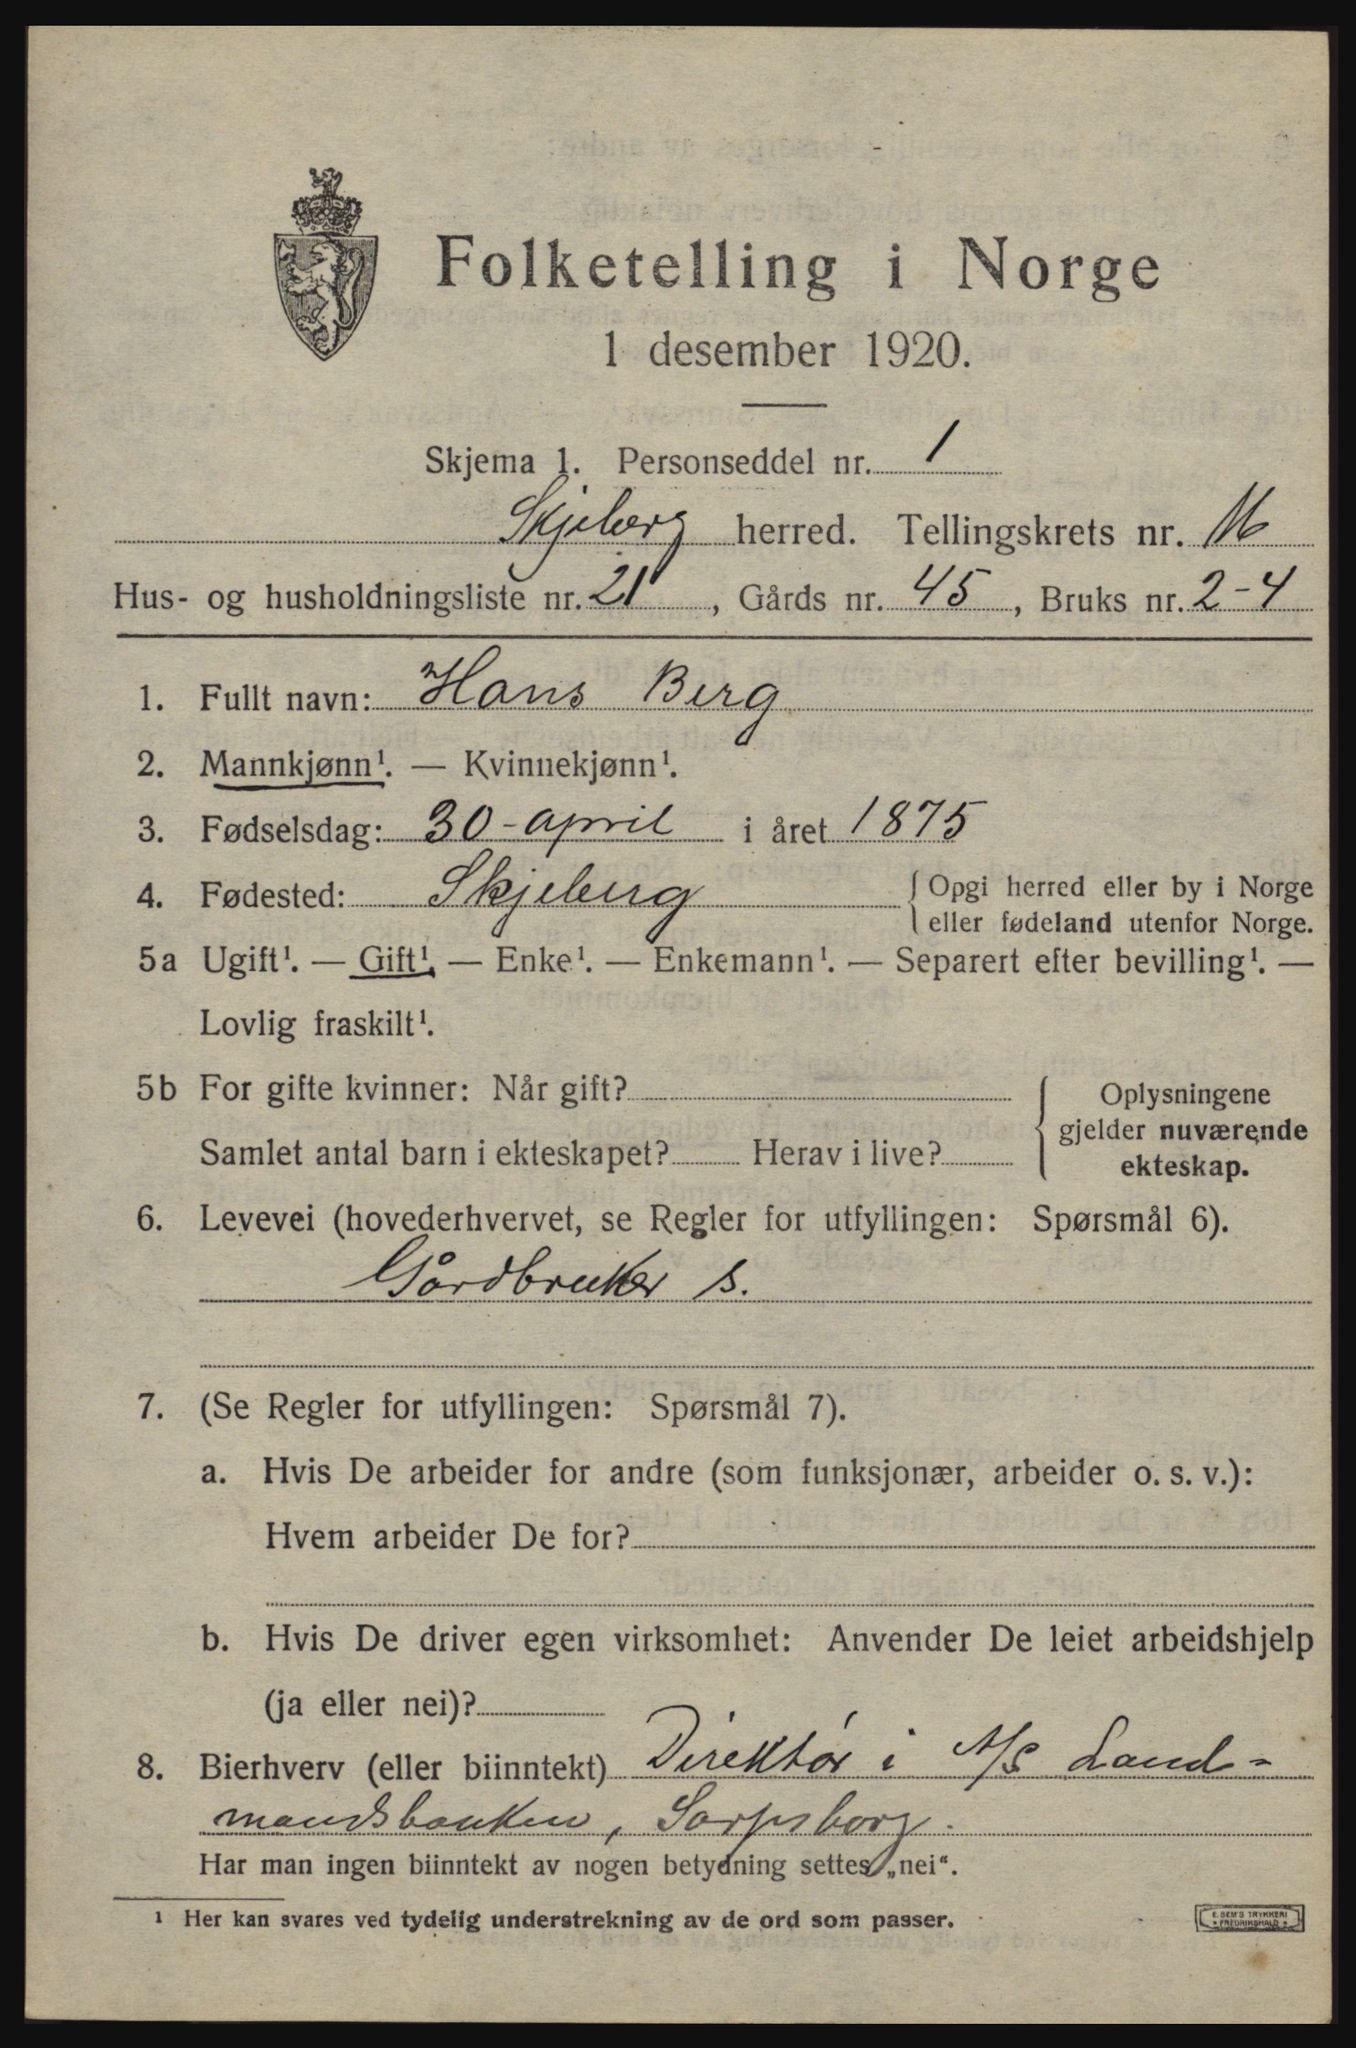 Folketelling i Norge
1 desember 1920.
Skjema 1. Personseddel nr. 1
Skjeberg herred. Tellingskrets nr. 11
Hus- og husholdningsliste nr. 21, Gårds nr. 45, Bruks nr. 2-4
1. Fullt navn: Hans Berg
2. Mannkjønn¹. — Kvinnekjønn¹.
3. Fødselsdag: 30-april i året 1875
4. Fødested: Skjeberg { Opgi herred eller by i Norge
eller fødeland utenfor Norge.
5a Ugift¹. — Gift¹, — Enke¹. — Enkemann¹. — Separert efter bevilling¹. —
Lovlig fraskilt¹.
5b For gifte kvinner: Når gift?
Samlet antal barn i ekteskapet? Herav i live?
{ Oplysningene
gjelder nuværende
ekteskap.
6. Levevei (hovederhvervet, se Regler for utfyllingen: Spørsmål 6).
Gårdbruker s.
7. (Se Regler for utfyllingen: Spørsmål 7).
a. Hvis De arbeider for andre (som funksjonær, arbeider o. s. v.):
Hvem arbeider De for?
b. Hvis De driver egen virksomhet: Anvender De leiet arbeidshjelp
(ja eller nei)?
8. Bierhverv (eller biinntekt) Direktør i A/S Land-
mandsbanken, Sarpsborg.
Har man ingen biinntekt av nogen betydning settes „nei“.
¹ Her kan svares ved tydelig understrekning av de ord som passer.
E. SEM'S TRYKKERI
FREDRIKSHALD